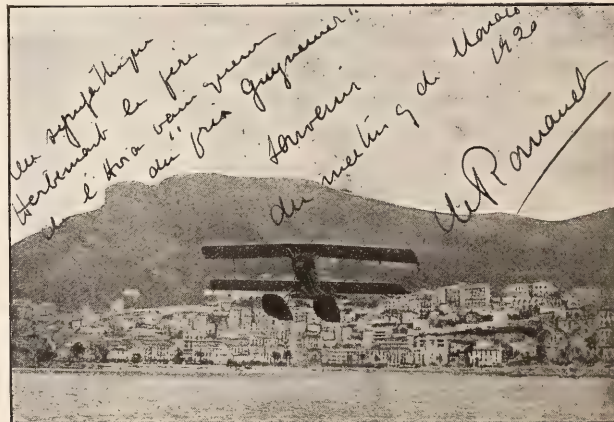 au sympathique
Herbemont le père
de l'Avia vainqueur
du prix Guynemer"
souvenir
du meeting de Monaco
1920
de Romanet